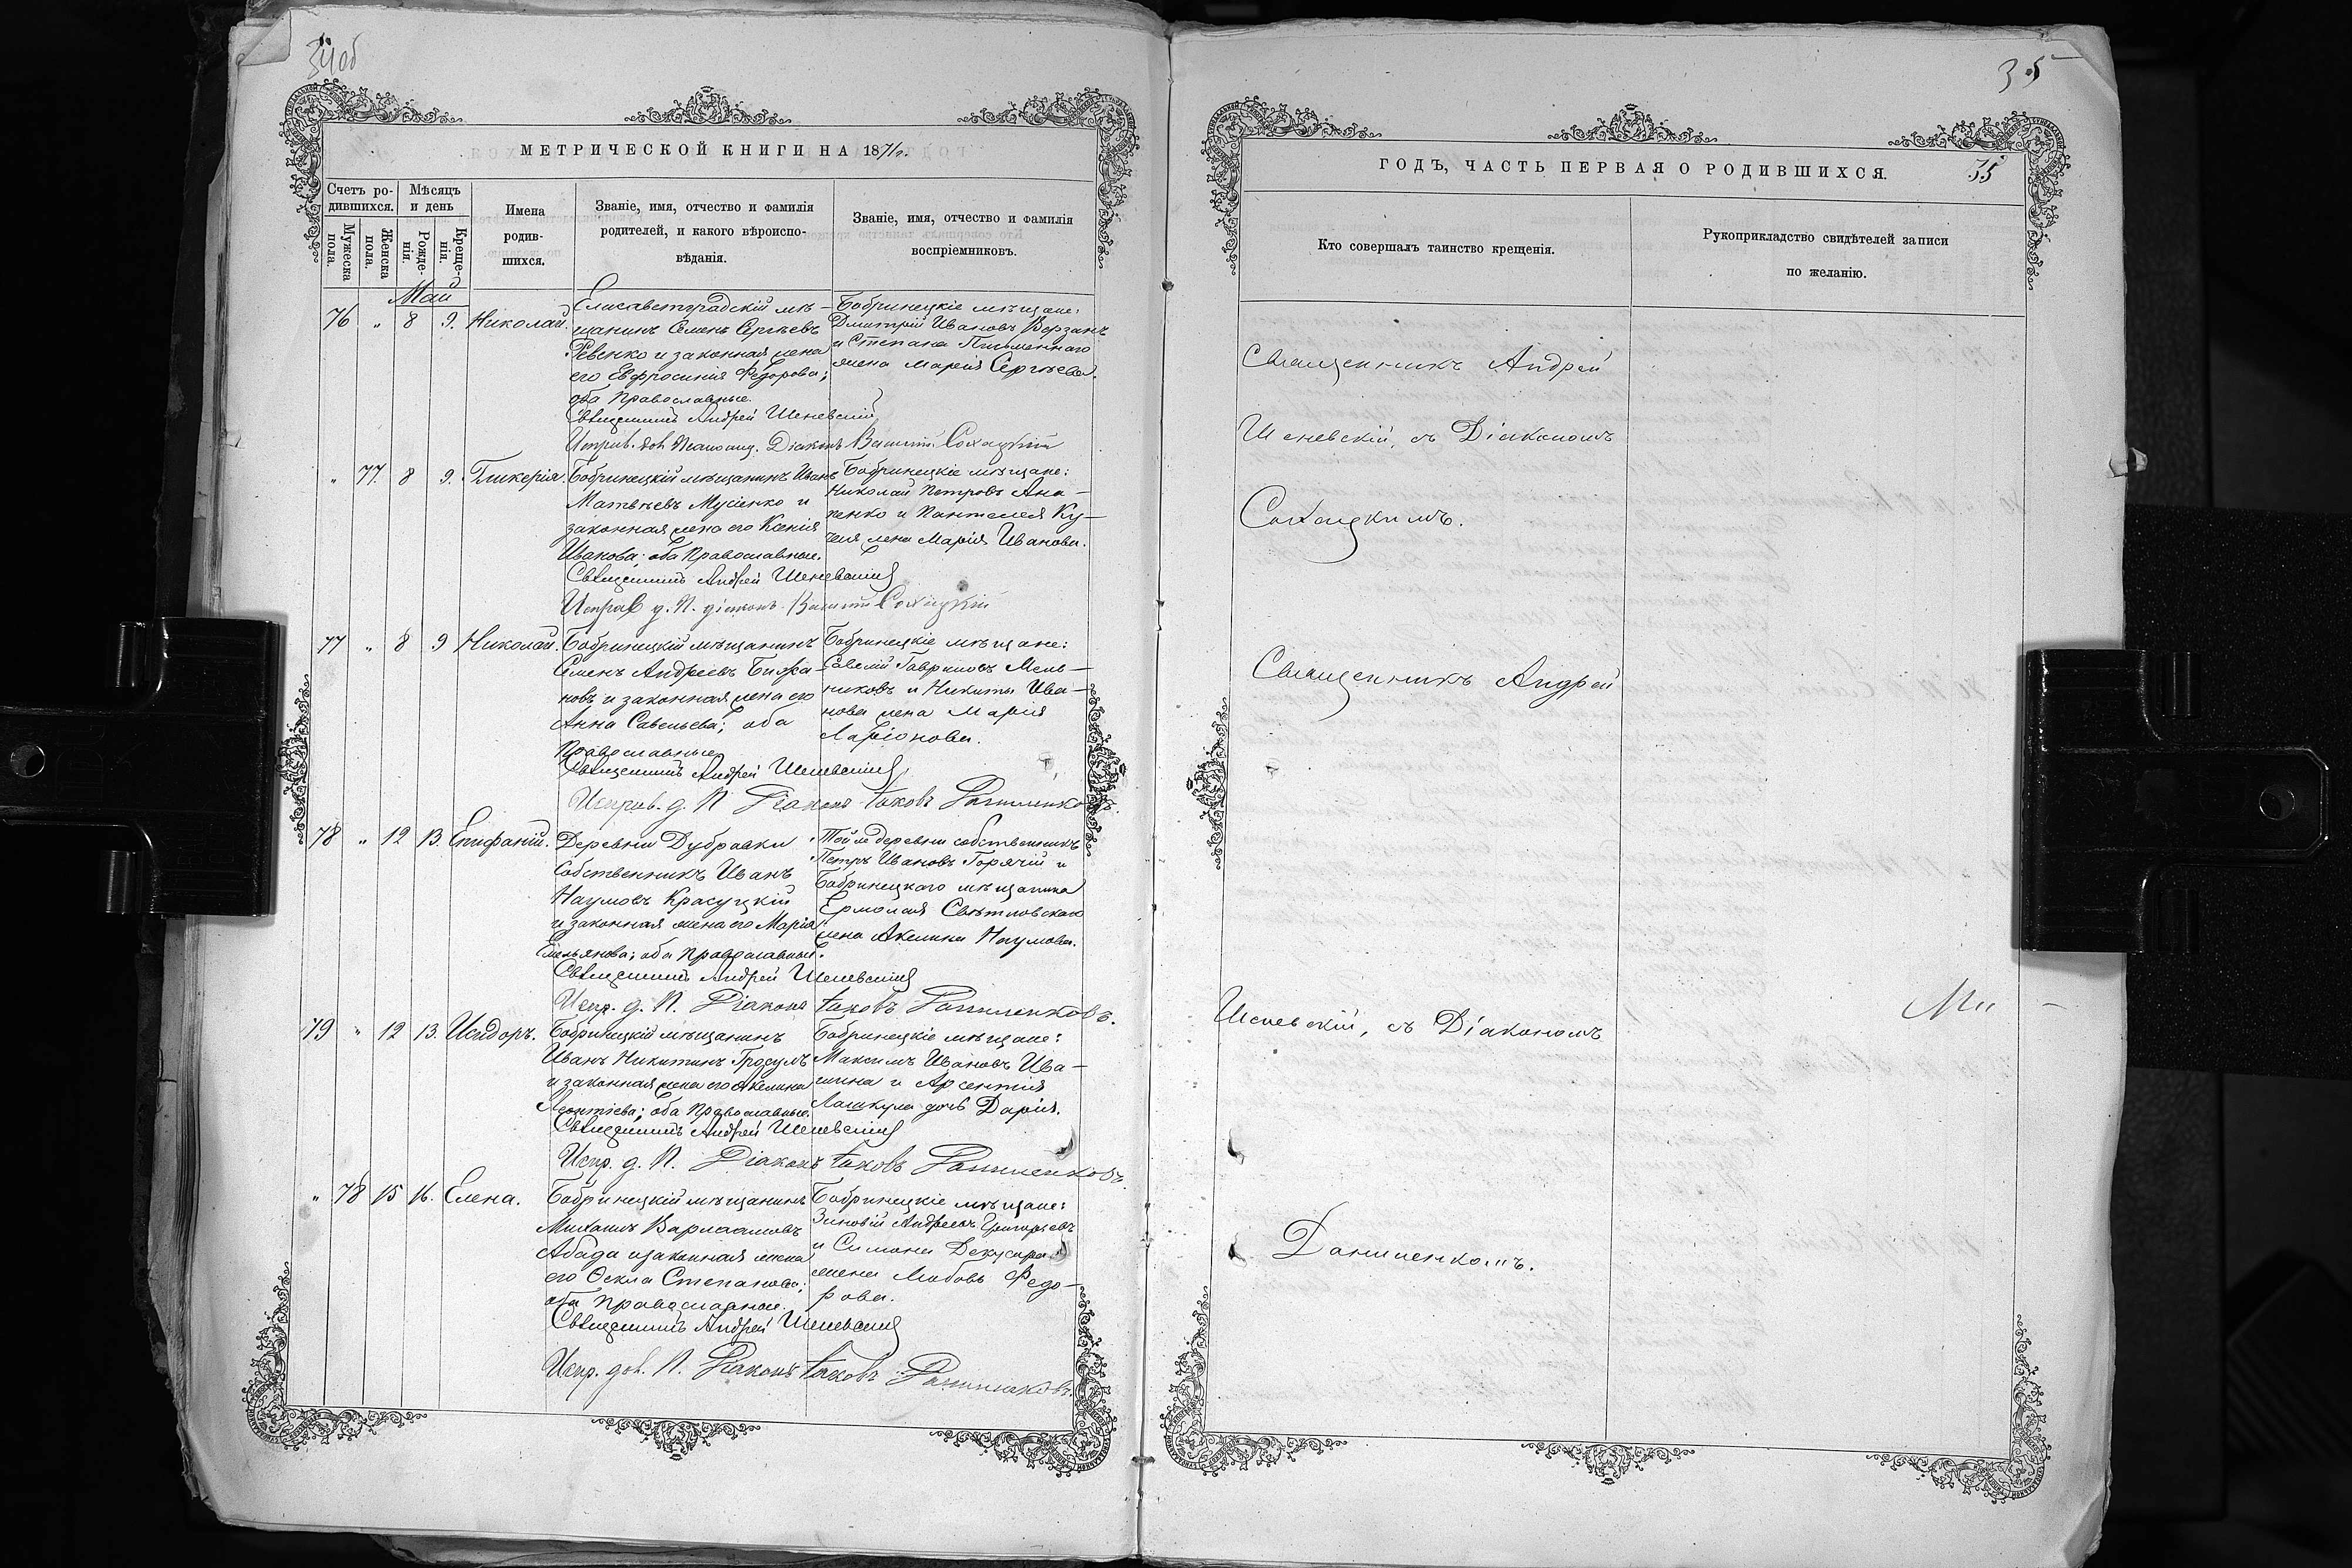 34об
МЕТРИЧЕСКОЙ КНИГИ НА 1871 г.
Счетъ ро-
дившихся.
Мужеска пола.
Женска пола.
Мѣсяцъ
и день
Рожде-
нія.
Креще-
нія.
Имена
родив-
шихся.
Званіе, имя, отчество и фамилія
родителей, и какого вѣроиспо-
вѣданія.
Званіе, имя, отчество и фамилія
воспріемниковъ.
Май
76 „ 8 9. Николай.
Елисаветградскій мѣ-
щанинъ Семенъ Сергѣевъ
Ревенко и законная жена
его Евфросинія Федорова;
оба Православные.
Бобринецкіе мѣщане:
Дмитрій Ивановъ Верзанъ
и Степана Письменнаго
жена Марія Сергѣева.
Священникъ Андрей Шеневскій
Исправ. дол. Псаломщ. Діаконъ Сохацкій
„ 77. 8 9. Гликерія.
Бобринецкій мѣщанинъ Иванъ
Матвѣевъ Мусіенко и
законная жена его Ксенія
Иванова; оба Православные.
Бобринецкіе мѣщане:
Николай Петровъ Ана-
ненко и Пантелея Ку-
жена Марія Иванова.
Священникъ Андрей Шеневскій
Исправ. д. П. діаконъ Сохацкій
77 „ 8 9 Николай.
Бобринецкій мѣщанинъ
Семенъ Андреевъ
новъ и законная жена его
Анна Савельева; оба
Православные
Бобринецкіе мѣщане:
Савелій Гавриловъ Мель-
никовъ и Никиты Ива-
нова жена Марія
Ларіонова.
Священникъ Андрей Шеневскій
Исправ. д. П. Діаконъ Іаковъ Даниленковъ.
78 „ 12 13. Епифаній.
Деревни Дубравки
Собственникъ Иванъ
Наумовъ Красуцкій
и законная жена его Марія
Емельянова; оба Православные.
Той же деревни собственникъ
Петръ Ивановъ Горячій и
Бобринецкаго мѣщанина
Ермолая Свѣтловскаго
жена Акелина Наумова.
Священникъ Андрей Шеневскій
Испр. д. П. Діаконъ Іаковъ Даниленковъ.
79 „ 12 13. Исидоръ.
Бобринецкій мѣщанинъ
Иванъ Никитинъ Гросулъ
и законная жена его Акелина
Леонтіева; оба Православные.
Бобринецкіе мѣщане:
Максимъ Ивановъ Ива-
шина и Арсентія
Лашкула дочь Дарія.
Священникъ Андрей Шеневскій
Испр. д. П. Діаконъ Іаковъ Даниленковъ.
„ 78 15 16. Елена.
Бобринецкій мѣщанинъ
Михаилъ Варлаамовъ
Абада и законная жена
его Ѳекла Степанова;
оба Православные.
Бобринецкіе мѣщане:
Зиновій Андреевъ Григорьевъ
и Симона
жена Любовь Федо-
рова.
Священникъ Андрей Шеневскій
Испр. дол. П. Діаконъ Іаковъ Даниленковъ.
35
ГОДЪ, ЧАСТЬ ПЕРВАЯ О РОДИВШИХСЯ.
35
Кто совершалъ таинство крещенія.
Рукоприкладство свидѣтелей записи
по желанію.
Священникъ Андрей
Шеневскій, съ Діакономъ
Сохацкимъ.
Священникъ Андрей
Шеневскій, съ Діакономъ
Даниленкомъ.